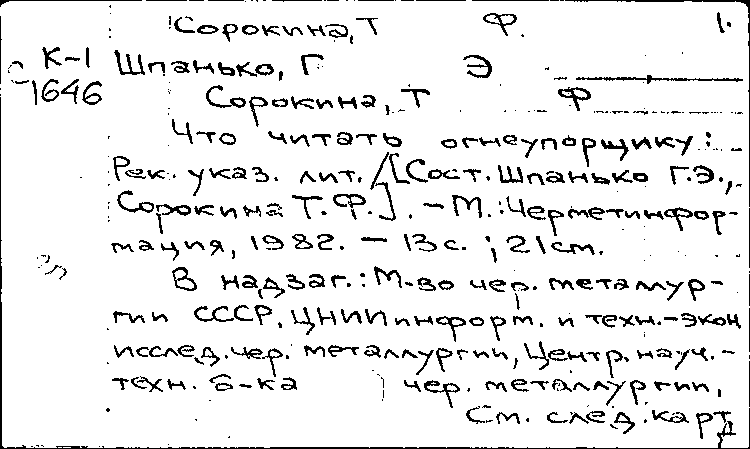 Сорокина, Т Ф. 1.
С К-1 Шпанько, Г Э
1646 Сорокина, Т Ф
Что читать огнеупорщику:
Рек. указ. лит. /[Сост. Шпанько Г.Э.,
Сорокина Т.Ф.]. - М.: Черметинфор-
мация, 1982. - 13 с. ; 21 см.
В надзаг.: М-во чер. металлур-
гии СССР, ЦНИИ информ. и техн.-экон
исслед. чер. металлургии, Центр. науч.-
техн. б-ка чер. металлургии,
См. след. карт